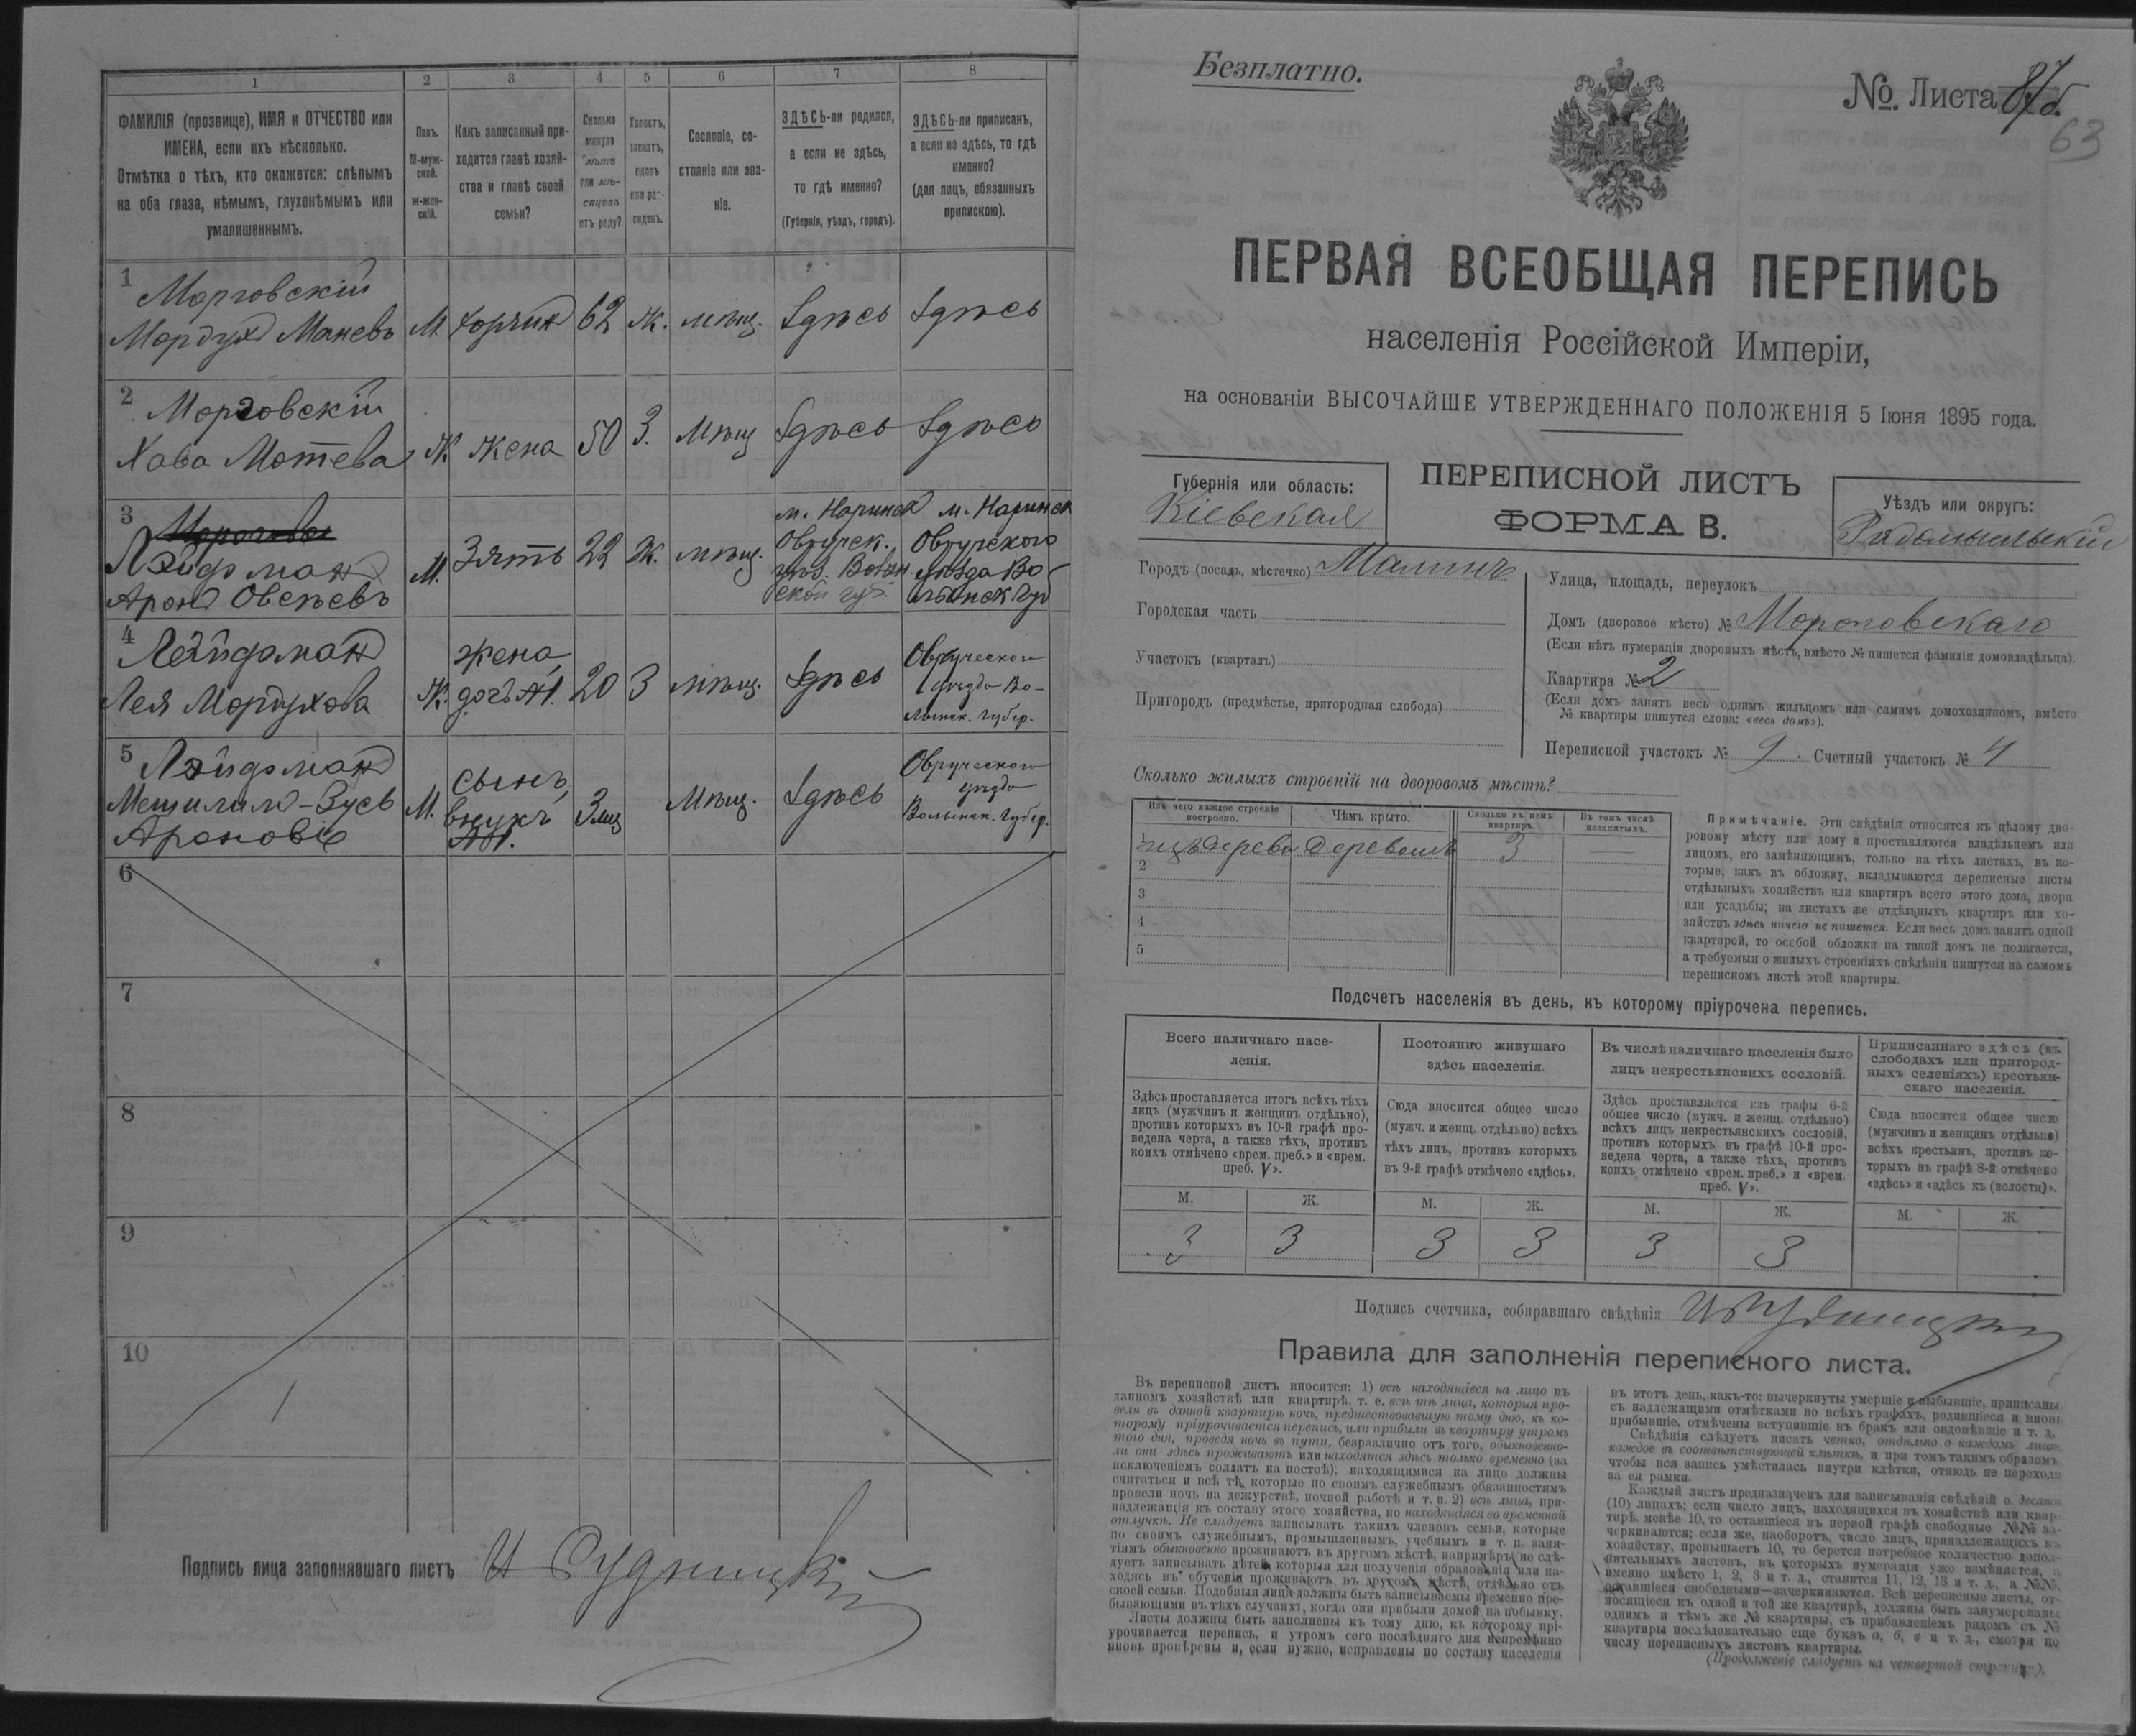 1
2
3
4
5
6
7
8
ФАМИЛІЯ (прозвище), ИМЯ и ОТЧЕСТВО или
ИМЕНА, если ихъ нѣсколько.
Отмѣтка о тѣхъ, кто окажется: слѣпымъ
на оба глаза, нѣмымъ, глухонѣмымъ или
умалишеннымъ.
Полъ.
М-муж-
ской.
ж-жен-
скій.
Какъ записанный при-
ходится главѣ хозяй-
ства и главѣ своей
семьи?
Сколько
минуло
лѣтъ
или мѣ-
сяцевъ
отъ роду?
Холостъ,
женатъ,
вдовъ
или раз-
веденъ.
Сословіе, со-
стояніе или зва-
ніе.
ЗДѢСЬ-ли родился,
а если не здѣсь,
то гдѣ именно?
(Губернія, уѣздъ, городъ).
ЗДѢСЬ-ли приписанъ,
а если не здѣсь, то гдѣ
именно?
(для лицъ, обязанныхъ
припискою).
1 Морговскій
Мордухъ Маневъ М. хозяинъ 62 Ж. мѣщ. Здѣсь Здѣсь
2 Морговскій
Хава Мотева Ж. жена 50 З. мѣщ Здѣсь Здѣсь
3
Лэйдэманъ
Аронъ Овсѣевъ М. Зять 22 Ж. мѣщ.
м. Норинск
Овручск.
уѣз. Волын
ской губ.
м. Норинск
Овручскаго
уѣзда Во
лынск. гу
4 Лейдэманъ
Лея Мордухова Ж. жена, дочь №1. 20 З мѣщ. Здѣсь
Овручскаго
уѣзда Во-
лынск. губер.
5 Лэйдэманъ
Мешилимъ-Зусь
Ароновъ М. сынъ, внукъ №1. 3 мц мѣщ. Здѣсь
Овручскаго
уѣзда
Волынск. губер.
6
7
8
9
10
Подпись лица заполнявшаго листъ И Рудницкій
Безплатно.
№. Листа 87б.
63
ПЕРВАЯ ВСЕОБЩАЯ ПЕРЕПИСЬ
населенія Россійской Имперіи,
на основаніи ВЫСОЧАЙШЕ УТВЕРЖДЕННАГО ПОЛОЖЕНІЯ 5 Іюня 1895 года.
Губернія или область:
Кіевская
ПЕРЕПИСНОЙ ЛИСТЪ
ФОРМА В.
Уѣздъ или округъ:
Радомысльскій
Городъ (посадъ, мѣстечко) Малинъ
Городская часть
Участокъ (кварталъ)
Пригородъ (предмѣстье, пригородная слобода)
Улица, площадь, переулокъ
Домъ (дворовое мѣсто) № Морговскаго
(Если нѣтъ нумераціи дворовыхъ мѣстъ, вмѣсто № пишется фамилія домовладѣльца).
Квартира № 2
(Если домъ занятъ весь однимъ жильцомъ или самимъ домохозяиномъ, вмѣсто
№ квартиры пишутся слова: «весь домъ»).
Переписной участокъ № 9. Счетный участокъ № 4
Сколько жилыхъ строеній на дворовомъ мѣстѣ?
Изъ чего каждое строеніе
построено.
Чѣмъ крыто.
Сколько въ немъ
квартиръ.
Въ томъ числѣ
незанятыхъ.
1 изъ дерева деревомъ 3 —
2
3
4
5
Примѣчаніе. Эти свѣдѣнія относятся къ цѣлому дво-
ровому мѣсту или дому и проставляются владѣльцемъ или
лицомъ, его замѣняющимъ, только на тѣхъ листахъ, въ ко-
торые, какъ въ обложку, вкладываются переписные листы
отдѣльныхъ хозяйствъ или квартиръ всего этого дома, двора
или усадьбы; на листахъ же отдѣльныхъ квартиръ или хо-
зяйствъ здѣсь ничего не пишется. Если весь домъ занятъ одной
квартирой, то особой обложки на такой домъ не полагается,
а требуемыя о жилыхъ строеніяхъ свѣдѣнія пишутся на самомъ
переписномъ листѣ этой квартиры.
Подсчетъ населенія въ день, къ которому пріурочена перепись.
Всего наличнаго насе-
ленія.
Здѣсь проставляется итогъ всѣхъ тѣхъ
лицъ (мужчинъ и женщинъ отдѣльно),
противъ которыхъ въ 10-й графѣ про-
ведена черта, а также тѣхъ, противъ
коихъ отмѣчено «врем. преб.» и «врем.
преб. V».
Постоянно живущаго
здѣсь населенія.
Сюда вносится общее число
(мужч. и женщ. отдѣльно) всѣхъ
тѣхъ лицъ, противъ которыхъ
въ 9-й графѣ отмѣчено «здѣсь».
Въ числѣ наличнаго населенія было
лицъ некрестьянскихъ сословій.
Здѣсь проставляется изъ графы 6-й
общее число (мужч. и женщ. отдѣльно)
всѣхъ лицъ некрестьянскихъ сословій,
противъ которыхъ въ графѣ 10-й про-
ведена черта, а также тѣхъ, противъ
коихъ отмѣчено «врем. преб.» и «врем.
преб. V».
Приписаннаго здѣсь (въ
слободахъ или пригород-
ныхъ селеніяхъ) крестьян-
скаго населенія.
Сюда вносится общее число
(мужчинъ и женщинъ отдѣльно)
всѣхъ крестьянъ, противъ ко-
торыхъ въ графѣ 8-й отмѣчено
«здѣсь» и «здѣсь къ (волости)».
М. Ж. М. Ж. М. Ж. М. Ж.
3 3 3 3 3 3
Подпись счетчика, собиравшаго свѣдѣнія
Правила для заполненія переписного листа.
Въ переписной листъ вносятся: 1) всѣ находящіеся на лицо въ
данномъ хозяйствѣ или квартирѣ, т. е. всѣ тѣ лица, которыя про-
вели въ данной квартирѣ ночь, предшествовавшую тому дню, къ ко-
торому пріурочивается перепись, или прибыли въ квартиру утромъ
того дня, проведя ночь въ пути, безразлично отъ того, обыкновенно-
ли они здѣсь проживаютъ или находятся здѣсь только временно (за
исключеніемъ солдатъ на постоѣ); находящимися на лицо должны
считаться и всѣ тѣ, которые по своимъ служебнымъ обязанностямъ
провели ночь на дежурствѣ, ночной работѣ и т. п. 2) всѣ лица, при-
надлежащія къ составу этого хозяйства, но находящіяся во временной
отлучкѣ. Не слѣдуетъ записывать такихъ членовъ семьи, которые
по своимъ служебнымъ, промышленнымъ, учебнымъ и т. п. заня-
тіямъ обыкновенно проживаютъ въ другомъ мѣстѣ, напримѣръ, не слѣ-
дуетъ записывать дѣтей, которыя для полученія образованія или на-
ходясь въ обученіи проживаютъ въ другомъ мѣстѣ, отдѣльно отъ
своей семьи. Подобныя лица должны быть записываемы временно пре-
бывающими въ тѣхъ случаяхъ, когда они прибыли домой на побывку.
Листы должны быть заполнены къ тому дню, къ которому прі-
урочивается перепись, и утромъ сего послѣдняго дня непремѣнно
вновь провѣрены и, если нужно, исправлены по составу населенія
въ этотъ день, какъ-то: вычеркнуты умершіе и выбывшіе, приписаны
съ надлежащими отмѣтками во всѣхъ графахъ, родившіеся и вновь
прибывшіе, отмѣчены вступившіе въ бракъ или овдовѣвшіе и т. д.
Свѣдѣнія слѣдуетъ писать четко, отдѣльно о каждомъ лицѣ,
каждое въ соотвѣтствующей клѣткѣ, и при томъ такимъ образомъ,
чтобы вся запись умѣстилась внутри клѣтки, отнюдь не переходя
за ея рамки.
Каждый листъ предназначенъ для записыванія свѣдѣній о десяти
(10) лицахъ; если число лицъ, находящихся въ хозяйствѣ или квар-
тирѣ, менѣе 10, то оставшіеся въ первой графѣ свободные №№ за-
черкиваются; если же, наоборотъ, число лицъ, принадлежащихъ къ
хозяйству, превышаетъ 10, то берется потребное количество допол-
нительныхъ листовъ, въ которыхъ нумерація уже измѣняется, а
именно вмѣсто 1, 2, 3 и т. д., ставится 11, 12, 13 и т. д., а №№,
оставшіеся свободными—зачеркиваются. Всѣ переписные листы, от-
носящіеся къ одной и той же квартирѣ, должны быть занумерованы
однимъ и тѣмъ же № квартиры, съ прибавленіемъ рядомъ съ №
квартиры послѣдовательно еще буквъ а, б, в и т. д., смотря по
числу переписныхъ листовъ квартиры.
(Продолженіе слѣдуетъ на четвертой страницѣ).